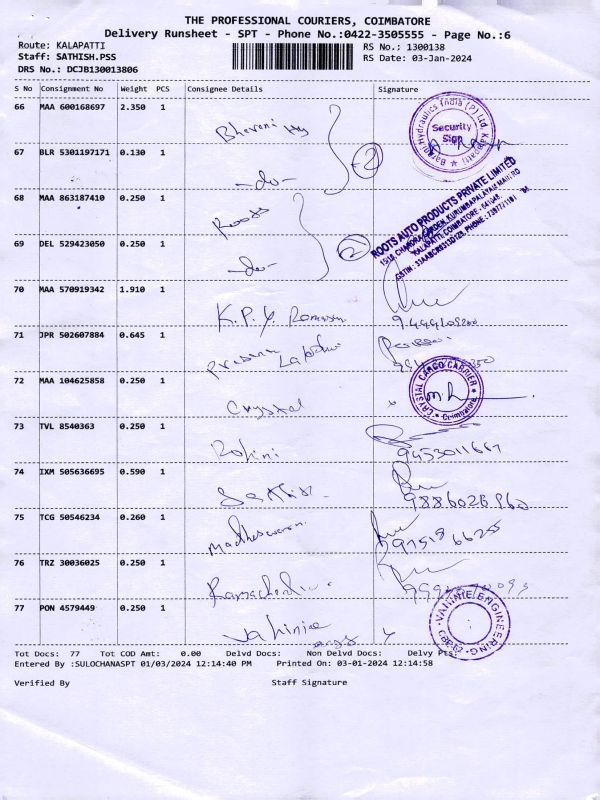 THE PROFESSIONAL COURIERS, COIMBATORE
Delivery Runsheet - SPT - Phone No.:0422-3505555 - Page No.:6
Route: KALAPATTI
RS No.: 1300138
Staff: SATHISH.PSS
RS Date: 03-Jan-2024
DRS No.: DCJB130013806
S No Consignment No Weight PCS Consignee Details Signature
66 MAA 600168697 2.350 1
Security
Sign
67 BLR 5301197171 0.130 1
-do-
2
68 MAA 863187410 0.250 1
Roots
ROOTS AUTO PRODUCTS PRIVATE LIMITED
69 DEL 529423050 0.250 1
-do-
2
70 MAA 570919342 1.910 1
K.P.Y.
71 JPR 502607884 0.645 1
72 MAA 104625858 0.250 1
Crystal
CRYSTAL CARGO CARRIER
Coimbatore
73 TVL 8540363 0.250 1
Rohini
9453011667
74 IXM 505636695 0.590 1
75 TCG 50546234 0.260 1
Madheswaran
76 TRZ 30036025 0.250 1
77 PON 4579449 0.250 1
Vahinie
VAHNIE ENGINEERING
Tot Docs: 77 Tot COD Amt: 0.00 Delvd Docs: Non Delvd Docs: Delvy Pts:
Entered By :SULOCHANASPT 01/03/2024 12:14:40 PM Printed On: 03-01-2024 12:14:58
Verified By Staff Signature